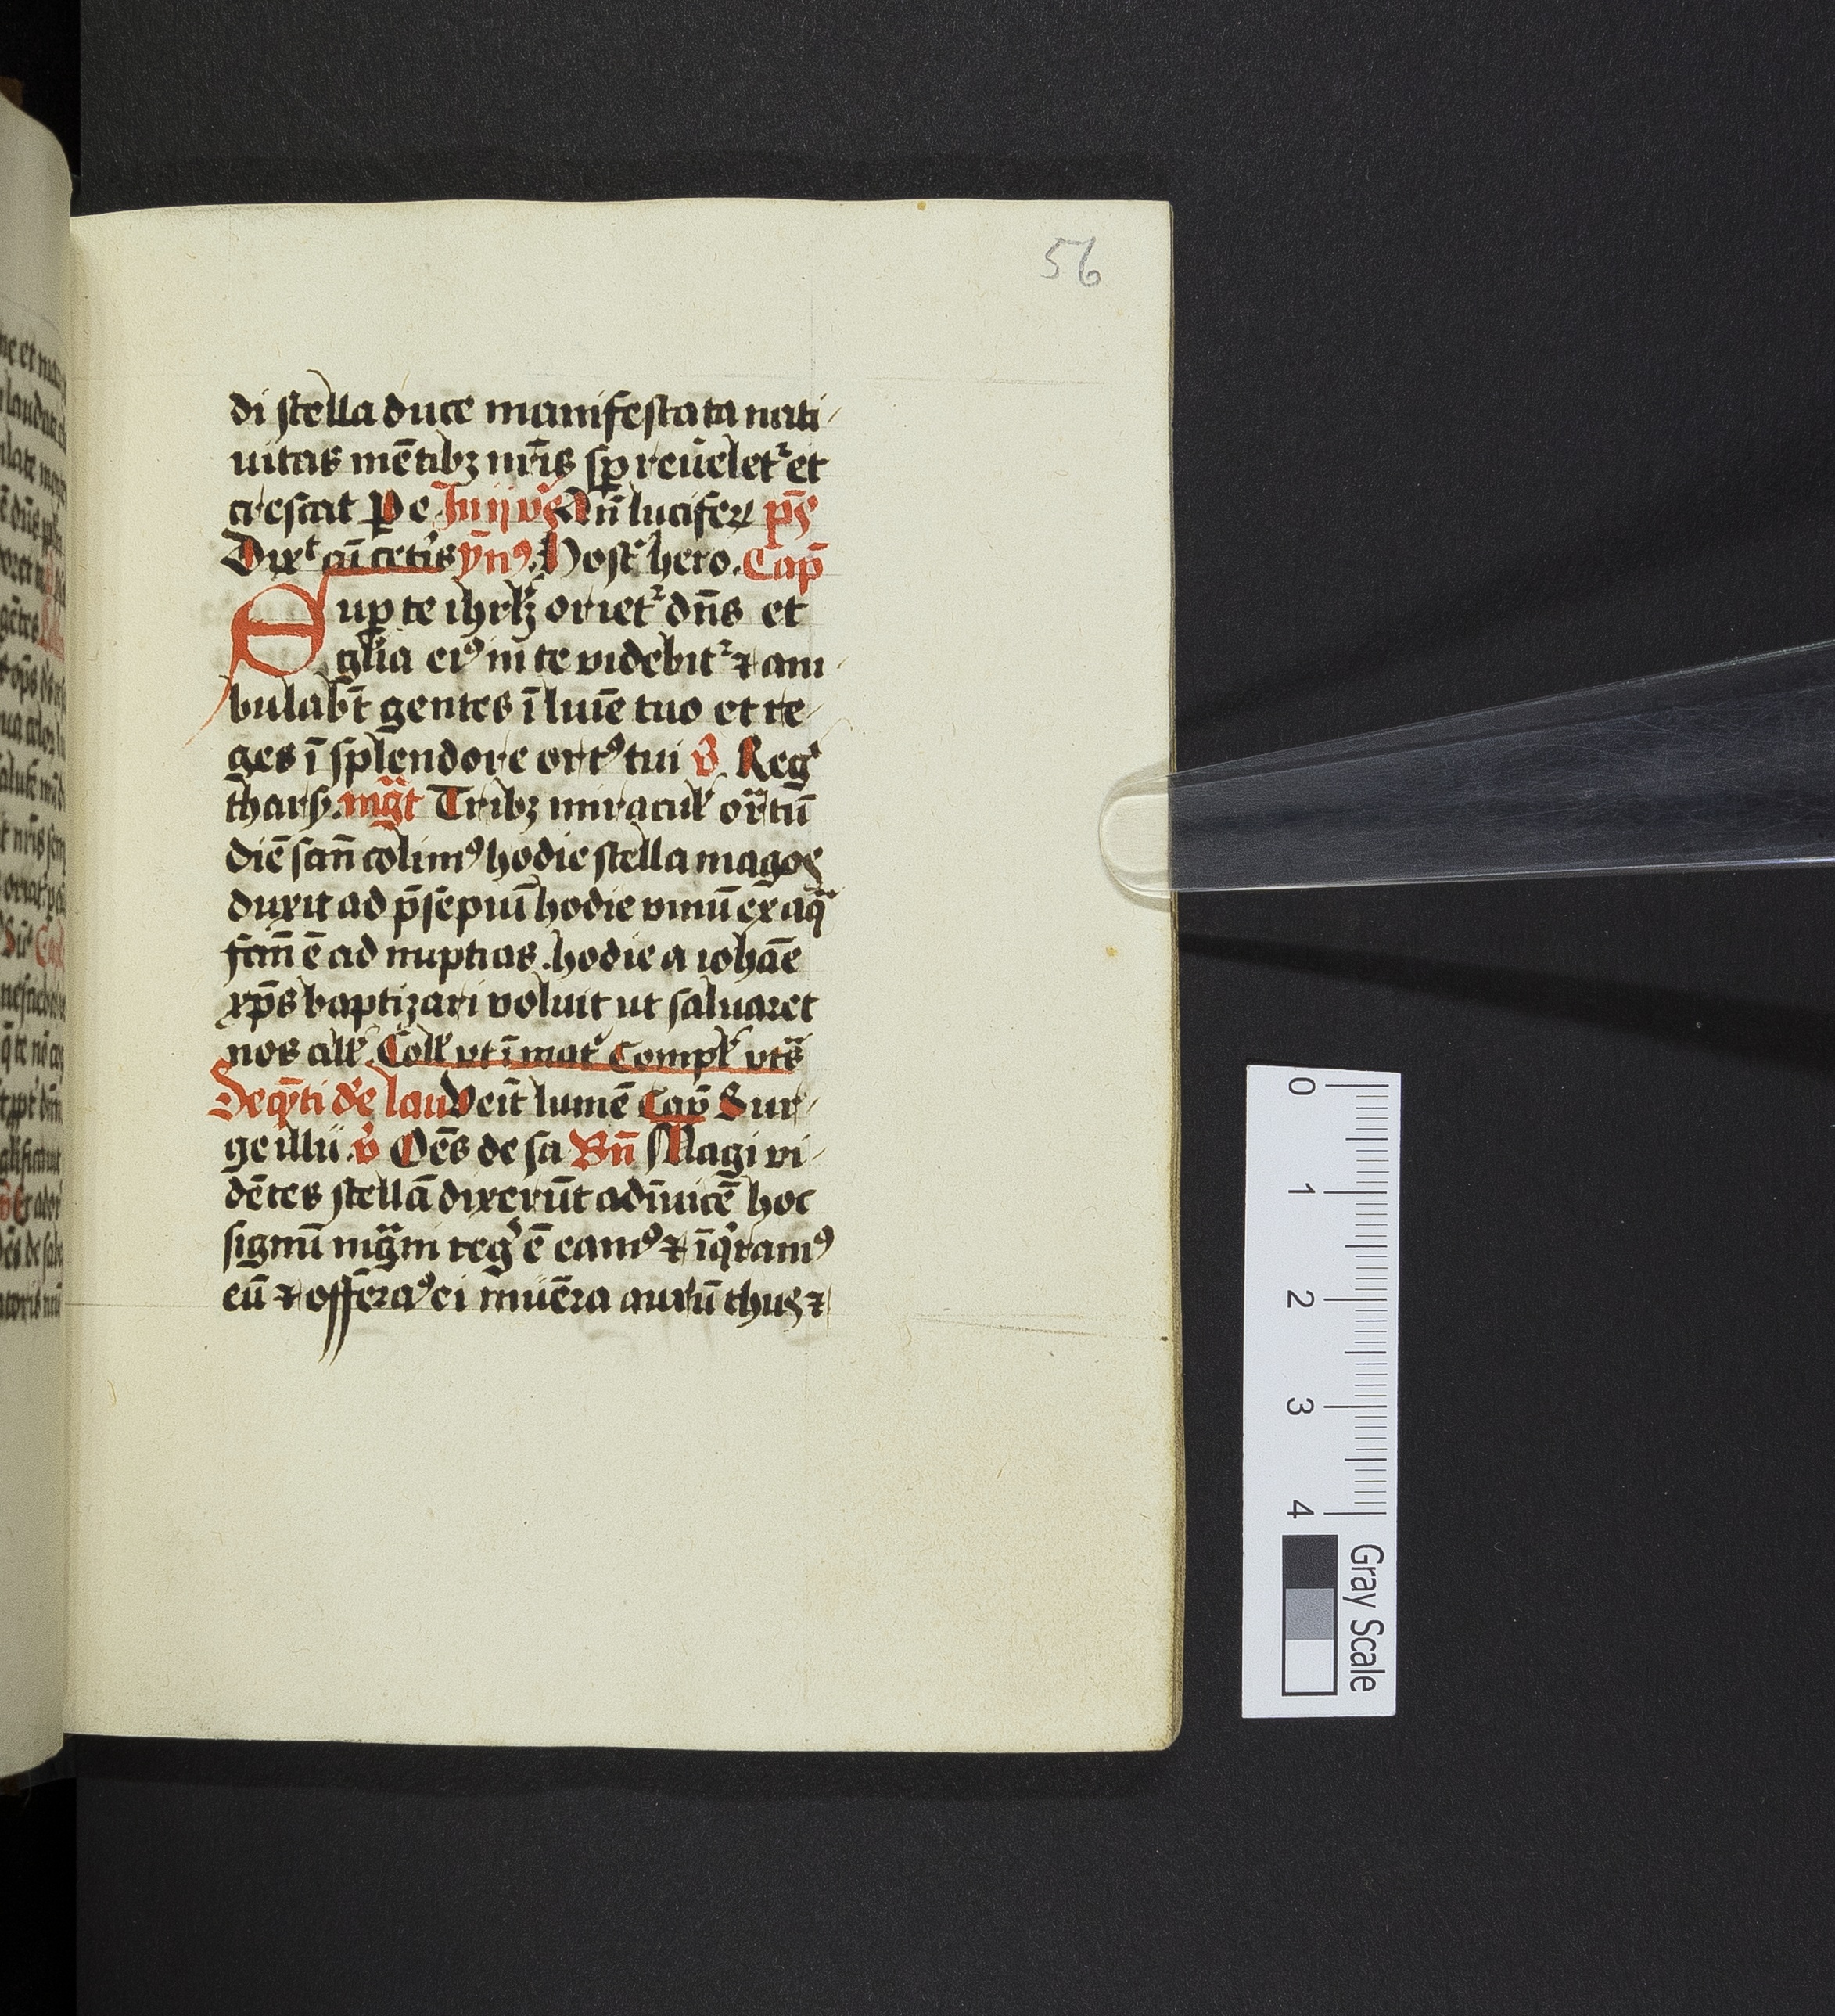 56
di stella duce manifestata nati
uitas mētibꝫ nr̄is sꝑ reueletᷣ et
crescat ꝑ e In ij vs An̄ lucifeꝝ ps̄
Dixt cū cetis ȳnꝰ Host hero. Cap̄
Suꝑ te ihrlꝫ orietᷣ dn̄s et
gl̄ia eiꝰ in te videbitᷣ ⁊ am
bulabt̄ gentes ī luīe tuo et re
ges ī splendore ortꝰ tui v̄ Reg
thars. mgt Tribꝫ miracul ortū
diē san̄ colimꝰ hodie stella magos
duxit ad p̄sepiū hodie vinū ex aq̄
fcm̄ ē ad nuptias. hodie a iohāe
xp̄s baptizari voluit ut saluaret
nos all Coll vt ī mat Compl vts
De qn̄ti de lau Veīt lumē Cap̄ Sur
ge illu. v̄ Oēs de sa Bn̄ Magi vi
dētes stellā dixerūt adīuicē hoc
signū mgni reg ē eamꝰ ⁊ īqͥramꝰ
eū ⁊ offeraꝰ ei mūera aurū thus ⁊
0
1
2
3
4
Gray Scale